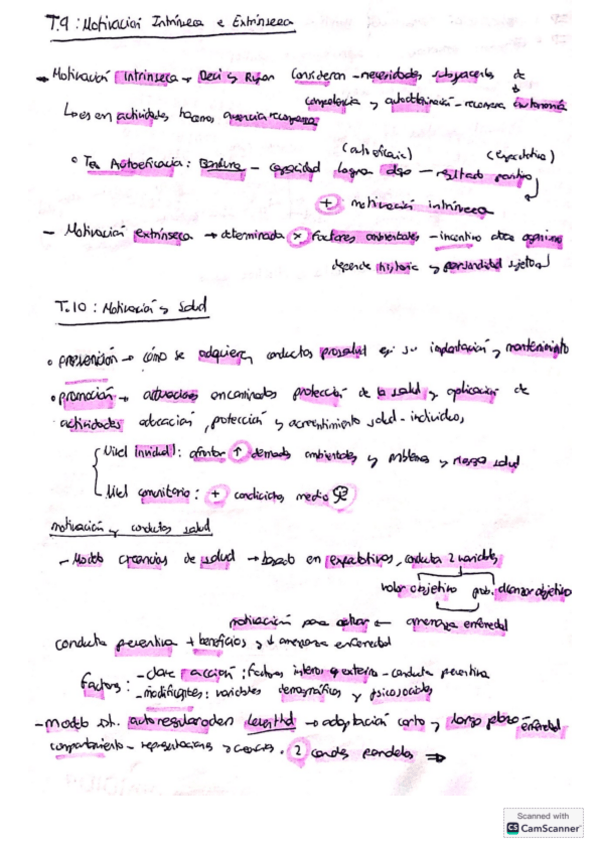 T.9 : Motivación Intrínseca e Extrínseca
→ Motivación Intrínseca → Deci y Ryan consideran - necesidades subyacentes de
↳ es en actividades hacemos ausencia recompensa competencia y autodeterminación - recompensa autonomía
(autoeficacia) (expectativa)
• Teo Autoeficacia : Bandura - capacidad lograr algo - resultado positivo
+ : motivación intrínseca
- Motivación extrínseca → determinada x factores ambientales - incentivo atrae organismo
depende historia y personalidad sujeto
T.10 : Motivación y Salud
• prevención → cómo se adquieren conductas prosalud en su implantación y mantenimiento
• promoción → actuaciones encaminadas protección de la salud y aplicación de
actividades educación, protección y acrecentimiento salud - individuos
Nivel individual : afrontar ↑ demandas ambientales y problemas y riesgo salud
Nivel comunitario : + condiciones medio
motivación y conductas salud
- Modelo creencias de salud → basado en expectativas, conducta 2 variables
valor objetivo prob. alcanzar objetivo
motivación para actuar ← amenaza enfermedad
conducta preventiva + beneficios y ↓ amenaza enfermedad
Factores : - clave acción : factores internos y externos - conducta preventiva
- modificantes : variables demográficas y psicosociales
- modelo autorregulación Leventhal → adaptación corto y largo plazo enfermedad
comportamiento - representaciones y creencias. 2 canales paralelos ⇒
Scanned with
CS CamScanner